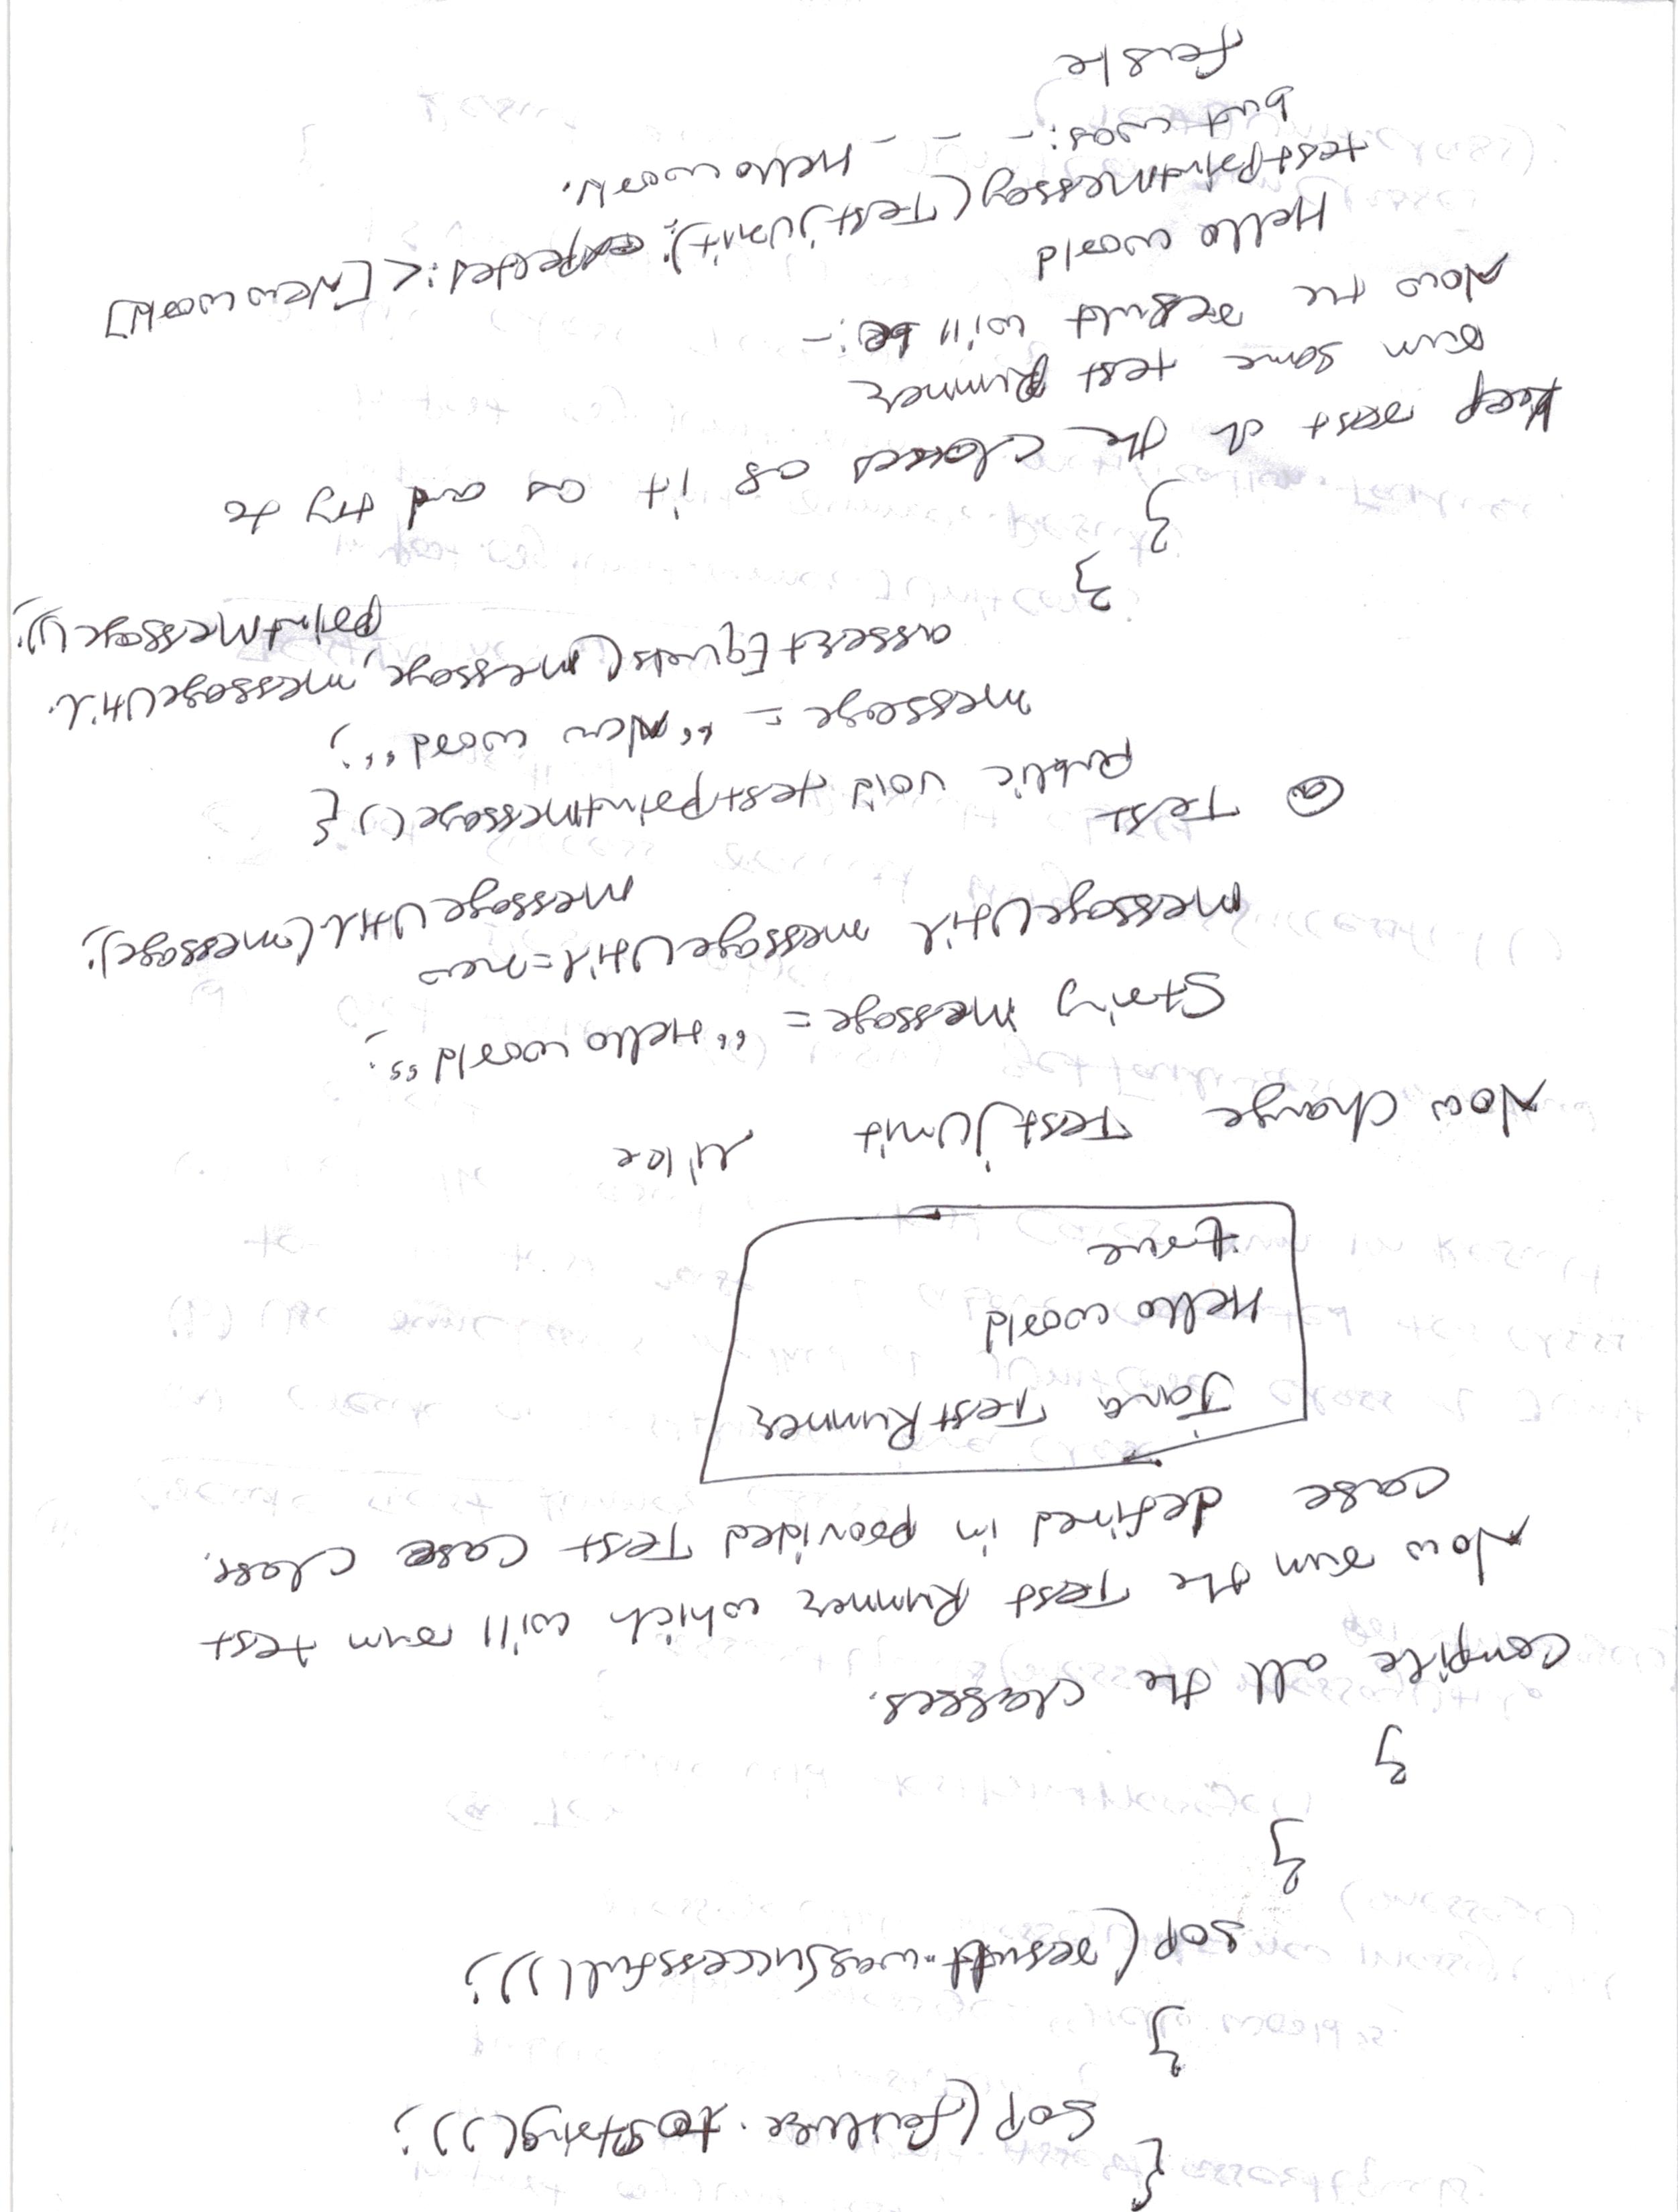 {
SOP (failure. toString());
}
SOP (result.wasSuccessful());
}
}
Compile all the classes.
Now run the Test Runner which will run test
case defined in provided Test case class.
Java TestRunner
Hello world
true
Now change TestjUnit like
String message = "Hello world";
messageUtil messageUtil = new
messageUtil (message);
@ Test
public void testprintmessage() {
message = "New word";
assertEquals (message, messageUtil.
printMessage());
}
}
Keep rest of the classes as it as and try to
run same test Runner
Now the result will be :-
Hello world
testprintMessag (TestjUnit): expected: < [New world]
but was: - - - - Hello world.
false